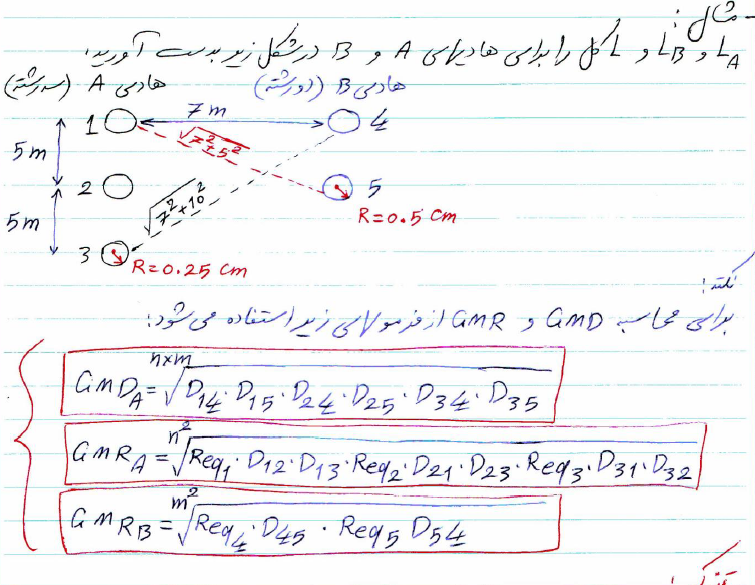 مثال:
L_A و L_B و L کل را برای هادیهای A و B در شکل زیر بدست آورید:
هادی A (سه رشته) هادی B (دو رشته)
1 7 m 4
√7²+5²
5 m
2 5
√7²+10²
R=0.5 cm
5 m
3
R=0.25 cm
نکته:
برای محاسبه GMD و GMR از فرمولهای زیر استفاده می شود:
GMD_A = ⁿˣᵐ√D14 · D15 · D24 · D25 · D34 · D35
GMR_A = ⁿ²√Req1 · D12 · D13 · Req2 · D21 · D23 · Req3 · D31 · D32
GMR_B = ᵐ²√Req4 · D45 · Req5 D54